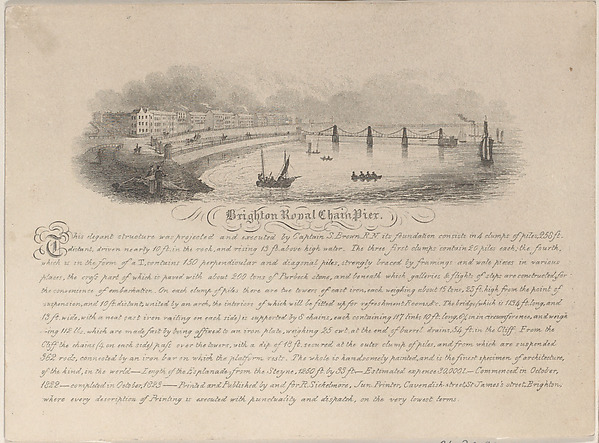 Brighton Royal Chain Pier.
This elegant structure was projected and executed by Captain S. Brown. R.N. its foundation consists in 4 clumps of piles, 258 ft.
distant, driven nearly 10 ft. in the rock, and rising 13 ft. above high water. The three first clumps contain 20 piles each; the fourth,
which is in the form of a T, contains 150 perpendicular and diagonal piles, strongly braced by framings and wale pieces in various
places; the cross part of which is paved with about 200 tons of Purbeck stone, and beneath which galleries & flights of steps are constructed, for
the convenience of embarkation. On each clump of piles there are two towers of cast iron, each weighing about 15 tons, 25 ft. high from the point of
suspension, and 10 ft. distant, united by an arch, the interiors of which will be fitted up for refreshment Rooms &c. The bridge, (which is 1134 ft. long, and
13 ft. wide, with a neat cast iron railing on each side,) is supported by 8 chains, each containing 117 links 10 ft. long, 6¼ in. circumference, and weigh-
ing 112 lbs, which are made fast by being affixed to an iron plate, weighing 25 cwt. at the end of barrel drains, 54 ft. in the Cliff. From the
Cliff the chains (4 on each side) pass over the towers, with a dip of 18 ft. secured at the outer clump of piles, and from which are suspended
362 rods, connected by an iron bar on which the platform rests. The whole is handsomely painted, and is the finest specimen of architecture,
of the kind, in the world — Length of the Esplanade, from the Steyne, 1250 ft. by 33 ft. — Estimated expense 30,000l. — Commenced in October,
1822 — completed in October, 1823 — Printed and Published by and for R. Sickelmore, Jun. Printer, Cavendish-street, St. James's street, Brighton,
where every description of Printing is executed with punctuality and dispatch, on the very lowest terms.